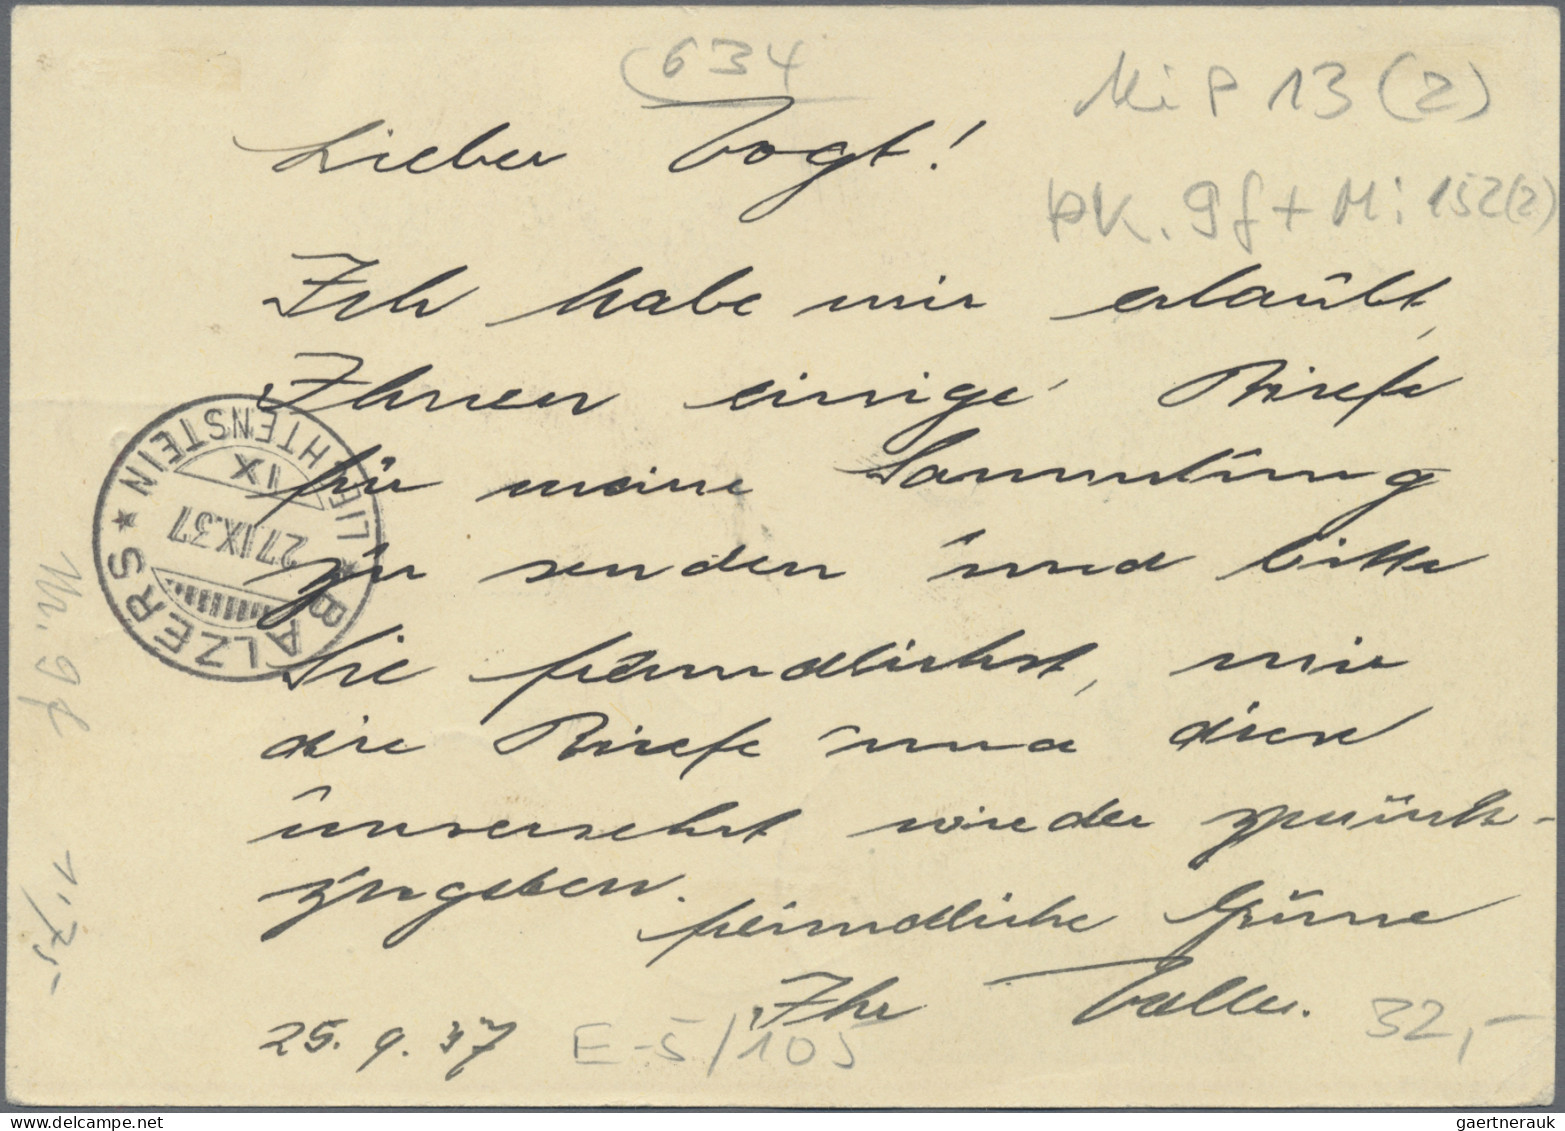 634
Mi P 13 (2)
Lieber Vogt!
PK. 9f + Mi 152(2)
Ich habe mir erlaubt,
Ihnen einige Briefe
für meine Sammlung
zu senden und bitte
Sie freundlichst, mir
die Briefe und diese
unversehrt wieder zurück-
zugeben.
freundliche Grüsse
Ihr
25. 9. 37
E-5/105
32,-
BALZERS
LIECHTENSTEIN
27.IX.37
IX
Mi. 9f
175,-
gaertnerauk.com